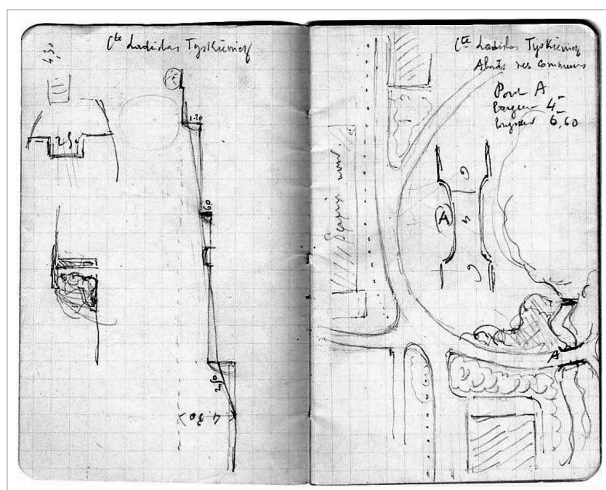 4,30
Cte Ladislas Tyskiewicz
2,50
1.20
60
2,50
4.30
Cte Ladislas Tyskiewicz
Abords des communs
Pont A
Largeur 4-
longueur 6,60
A
A